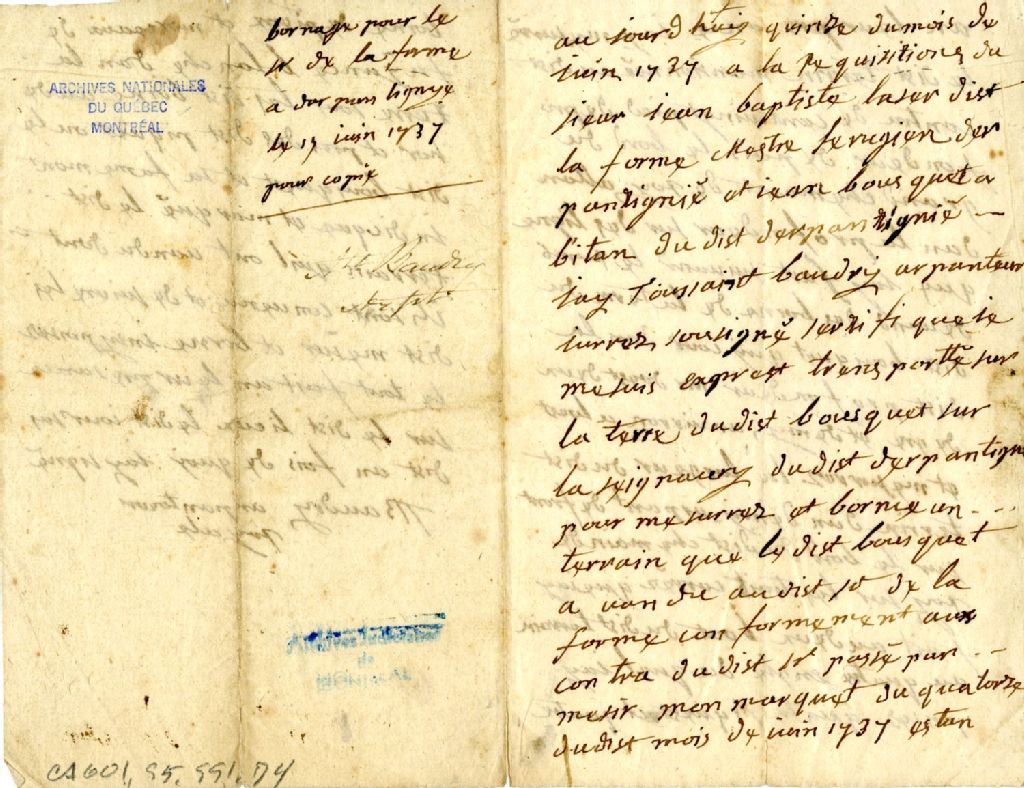 bornage pour le
sr de la forme
a derpantignye
le 15 juin 1737
pour copie
ARCHIVES NATIONALES
DU QUÉBEC
MONTRÉAL
Baudry
de
CA601, S5, SS1, D4
au jourd huy quinze du mois de
juin 1737 a la Requisitions du
sieur jean baptiste laser dist
la forme Mestre serugien der
pantignië et jean bousquet a
bitan du dist derpantignië
jay Toussaint baudry arpanteur
jurrez sousignë sertifi que je
me suis exprest trensporttë sur
la terre du dist bousquet sur
la seignaury du dist derpantigni
pour mesurrez et bornie un
terrain que le dist bousquet
a vandu au dist sr de la
forme conformement aux
contra du dist sr passé par
mesir monmarquet du quatorze
du dist mois de juin 1737 estan